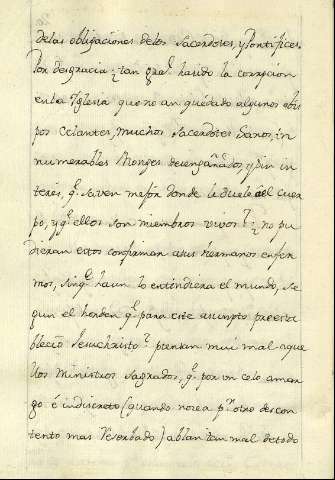 de las obligaciones de los Sacerdotes, y Pontifices
Por desgracia ¿tan gral ha sido la corrpcion
en la Yglesia que no an quedado algunos obis
pos Celantes, muchos Sacerdotes Sanos, in
numerables Monges desengañados, y sin in
teres, q.e saven mejor donde le duele el cuer
po, y q.e ellos son miembros vivos? ¿no pu
dieran estos confirmar a sus hermanos enfer
mos, sin q.e haun lo entendiera el mundo, se
gun el horden q.e para este asunpto preesta
blecio Jesuchristo? piensan mui mal aque
llos Ministros Sagrados, q.e por un celo amar
go é indiscreto (quando no sea p.r otro descon
tento mas reserbado) ablan tan mal de todo